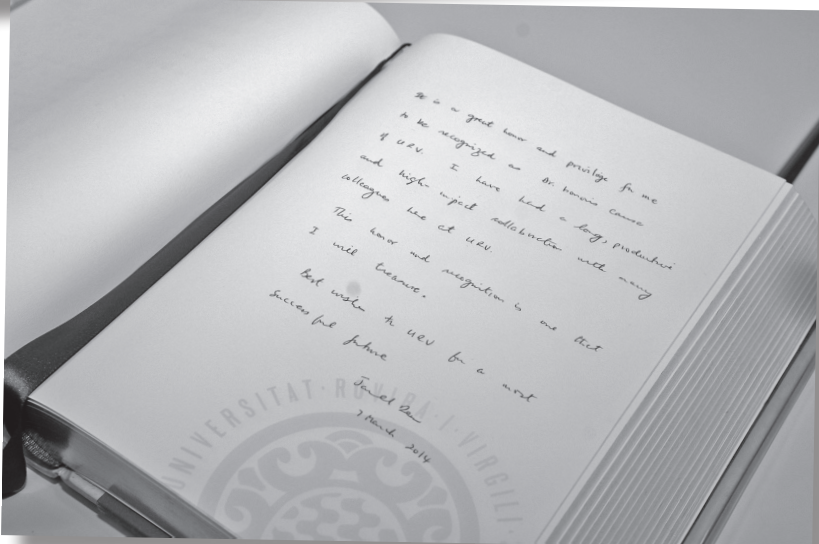 It is a great honor and privilege for me
to be recognized as Dr. Honoris Causa
of URV. I have had a long, productive
and high-impact collaboration with many
colleagues here at URV.
This honor and recognition is one that
I will treasure.
Best wishes to URV for a most
successful future
7 March 2014
UNIVERSITAT · ROVIRA · I · VIRGILI ·